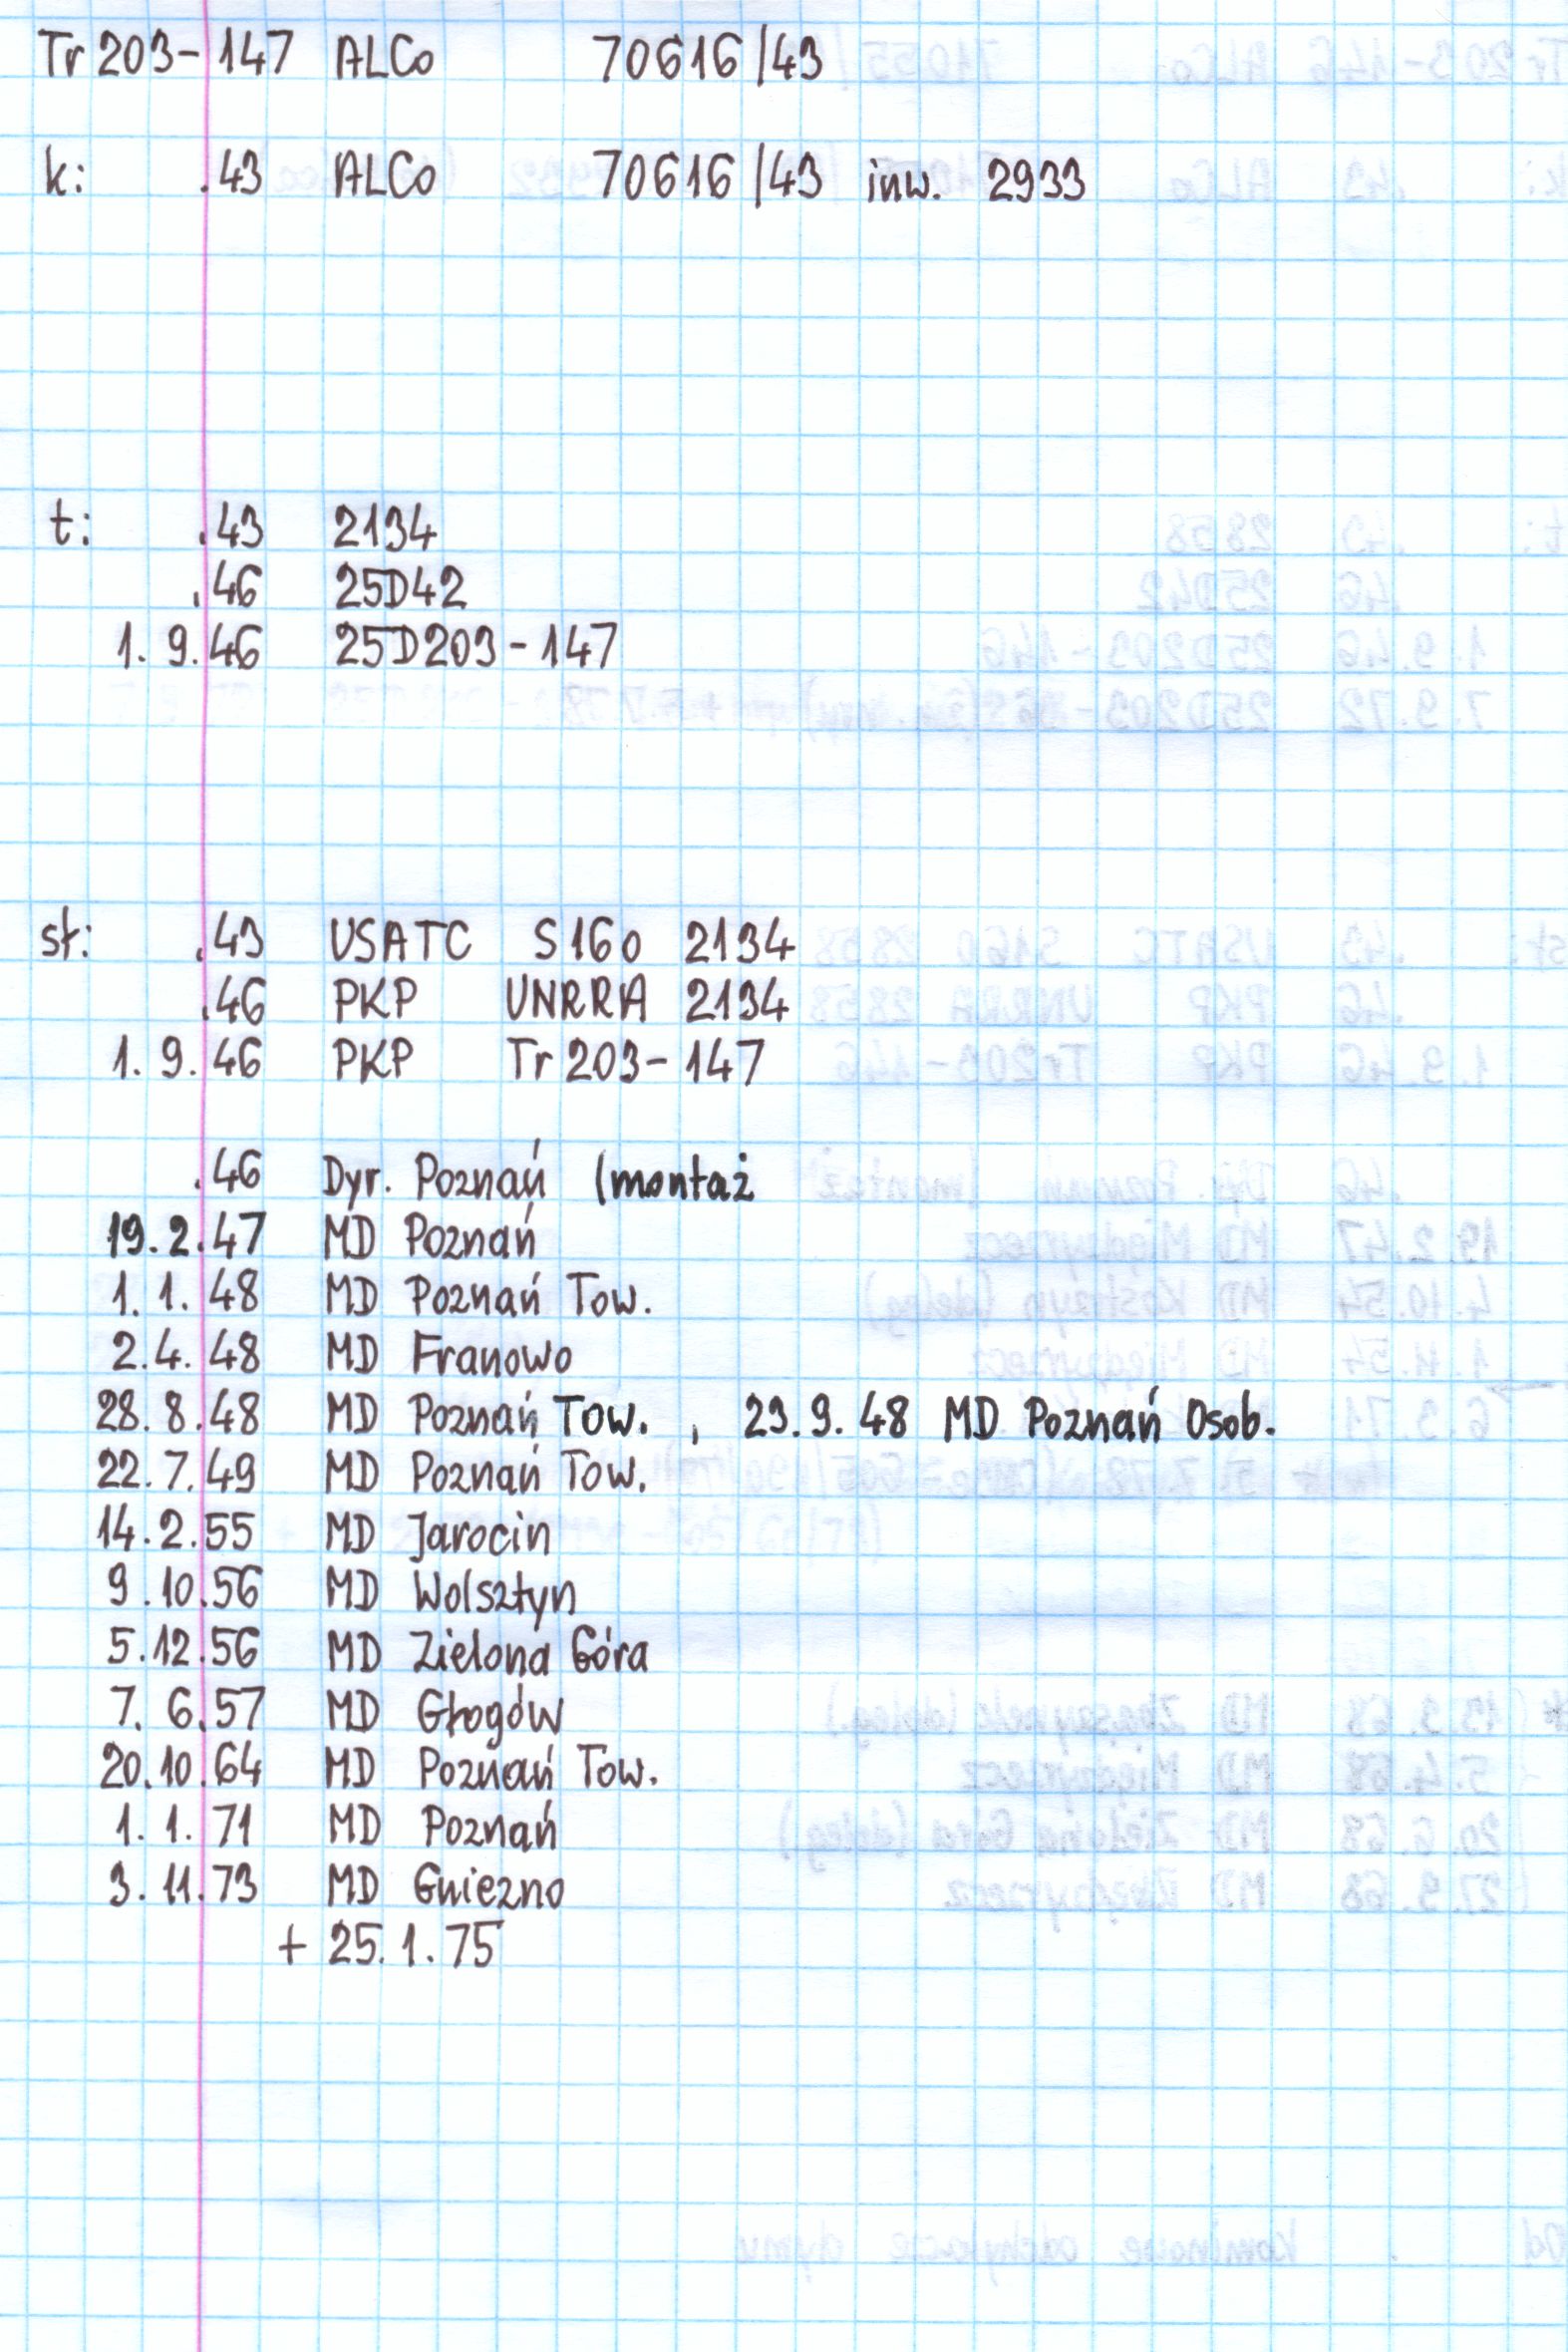 Tr 203-147 ALCo 70616/43
k: .43 ALCo 70616/43 inw. 2933
t: .43 2134
.46 25D42
1. 9.46 25D203-147
sł: .43 USATC S160 2134
.46 PKP UNRRA 2134
1. 9. 46 PKP Tr 203-147
.46 Dyr. Poznań (montaż
19.2.47 MD Poznań
1. 1. 48 MD Poznań Tow.
2.4. 48 MD Franowo
28. 8.48 MD Poznań Tow. , 23.9.48 MD Poznań Osob.
22.7.49 MD Poznań Tow.
14.2.55 MD Jarocin
9.10.56 MD Wolsztyn
5.12.56 MD Zielona Góra
7. 6.57 MD Głogów
20.10.64 MD Poznań Tow.
1. 1. 71 MD Poznań
3. 11.73 MD Gniezno
+ 25.1.75